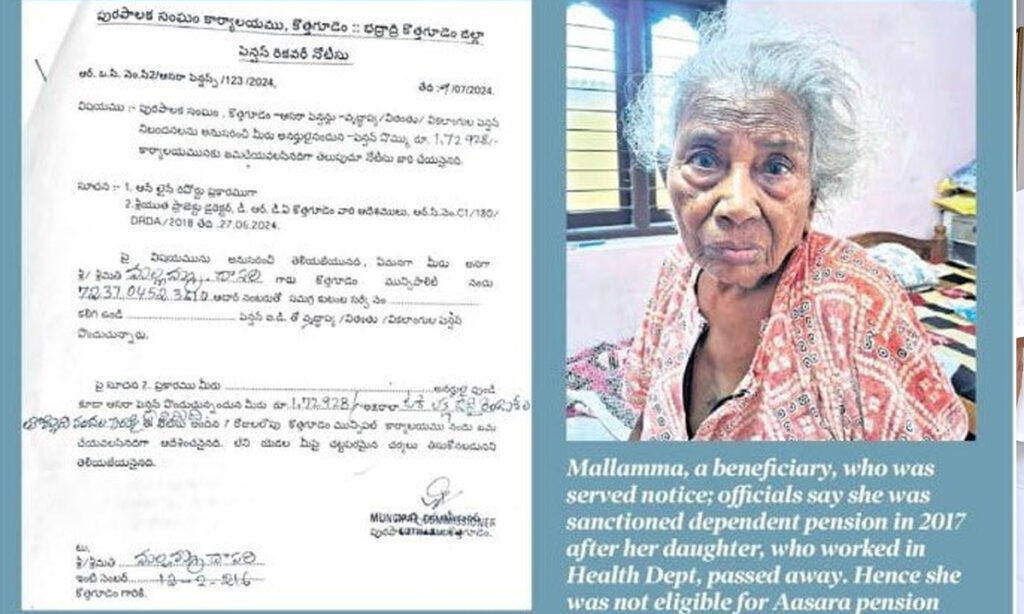 పురపాలక సంఘం కార్యాలయము, కొత్తగూడెం :: భద్రాద్రి కొత్తగూడెం జిల్లా
పెన్షన్ రికవరీ నోటీసు
ఆర్. ఒ.సి నెం.సి2/ఆసరా పెన్షన్స్ /123 /2024,
తేది : /07/2024.
విషయము :- పురపాలక సంఘం , కొత్తగూడెం -ఆసరా పెన్షన్లు -వృద్ధాప్య /వితంతు/ వికలాంగుల పెన్షన్
నిబందనలను అనుసరించి మీరు అనర్హులైనందున -పెన్షన్ సొమ్ము రూ. 1,72 928/-
కార్యాలయమునకు జమచేయవలసినదిగా తెలుపుచూ నోటీసు జారి చేయనైనది.
సూచన :- 1. ఆన్ లైన్ రిపోర్టు ప్రకారముగా
2.శ్రీయుత ప్రాజెక్టు డైరెక్టర్, డి. ఆర్. డి.ఏ కొత్తగూడెం వారి ఆదేశములు, ఆర్.సి.నెం.C1/180/
DRDA/2018 తేది .27.06.2024.
పై విషయమును అనుసరించి తెలియజేయునది , ఏమనగా మీరు అనగా
శ్రీ/ శ్రీమతి మల్లమ్మ. దాసరి గారు కొత్తగూడెం మున్సిపాలిటీ నందు
7237 0452 3210 ఆధార్ నంబరుతో సమగ్ర కుటుంబ సర్వే నెం
కలిగి ఉండి పెన్షన్ ఐ.డి. తో వృద్ధాప్య /వితంతు /వికలాంగుల పెన్షన్
పొందుచున్నారు.
పై సూచన 2. ప్రకారము మీరు అనర్హులై వుండి
కూడా ఆసరా పెన్షన్ పొందుచున్నందున మీరు రూ.1,72928/- అక్షరాలా
ఈ నోటీసు అందిన 7 రోజులలోపు కొత్తగూడెం మున్సిపల్ కార్యాలయము నందు జమ
చేయవలసినదిగా ఆదేశించనైనది. లేని యెడల మీపై చట్టపరమైన చర్యలు తీసుకొనబడునని
తెలియజేయనైనది.
MUNICIPAL COMMISSIONER
పురపాలక కొత్తగూడెం.
టు,
శ్రీ/శ్రీమతి మల్లమ్మ దాసరి
ఇంటి నెంబర్ 12-2-216
కొత్తగూడెం గారికి.
Mallamma, a beneficiary, who was
served notice; officials say she was
sanctioned dependent pension in 2017
after her daughter, who worked in
Health Dept, passed away. Hence she
was not eligible for Aasara pension